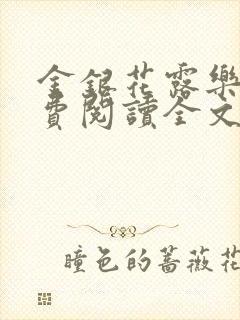 金銀花露樂
費閱讀全文
瞳色的薔薇花